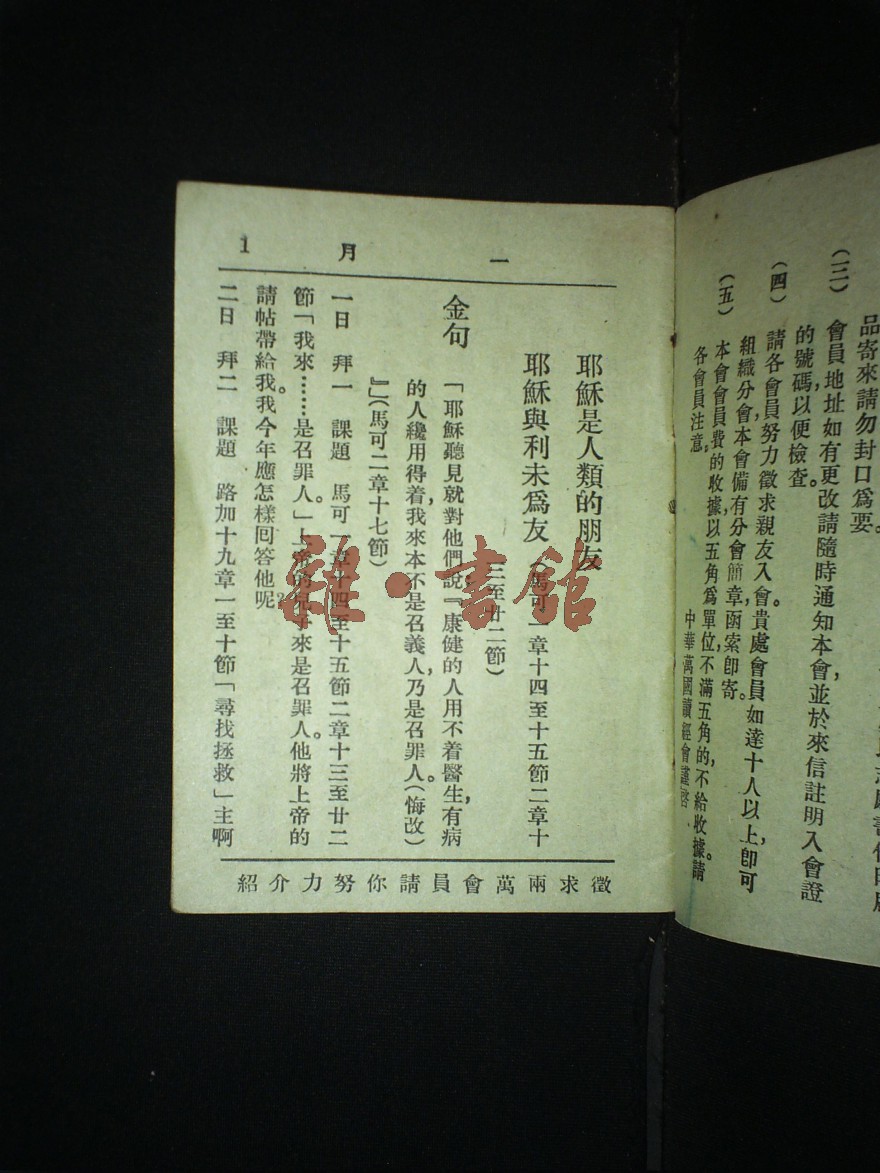 品寄來請勿封口爲要。
(三) 會員地址如有更改請隨時通知本會,並於來信註明入會證
的號碼,以便檢查。
(四) 請各會員努力徵求親友入會。貴處會員如達十人以上,卽可
組織分會本會備有分會簡章函索卽寄。
(五) 本會會員費的收據,以五角爲單位,不滿五角的,不給收據。請
各會員注意。
中華萬國讀經會謹啓
一月 1
耶穌是人類的朋友
耶穌與利未爲友(馬可一章十四至十五節二章十
三至廿二節)
金句 「耶穌聽見就對他們說『康健的人用不着醫生,有病
的人纔用得着,我來本不是召義人,乃是召罪人。(悔改)
』」(馬可二章十七節)
一日 拜一 課題 馬可一章十四至十五節二章十三至廿二
節「我來……是召罪人。」上帝的兒子來是召罪人。他將上帝的
請帖帶給我。我今年應怎樣囘答他呢?
二日 拜二 課題 路加十九章一至十節「尋找拯救」主啊
徵求兩萬會員請你努力介紹
雜·書館